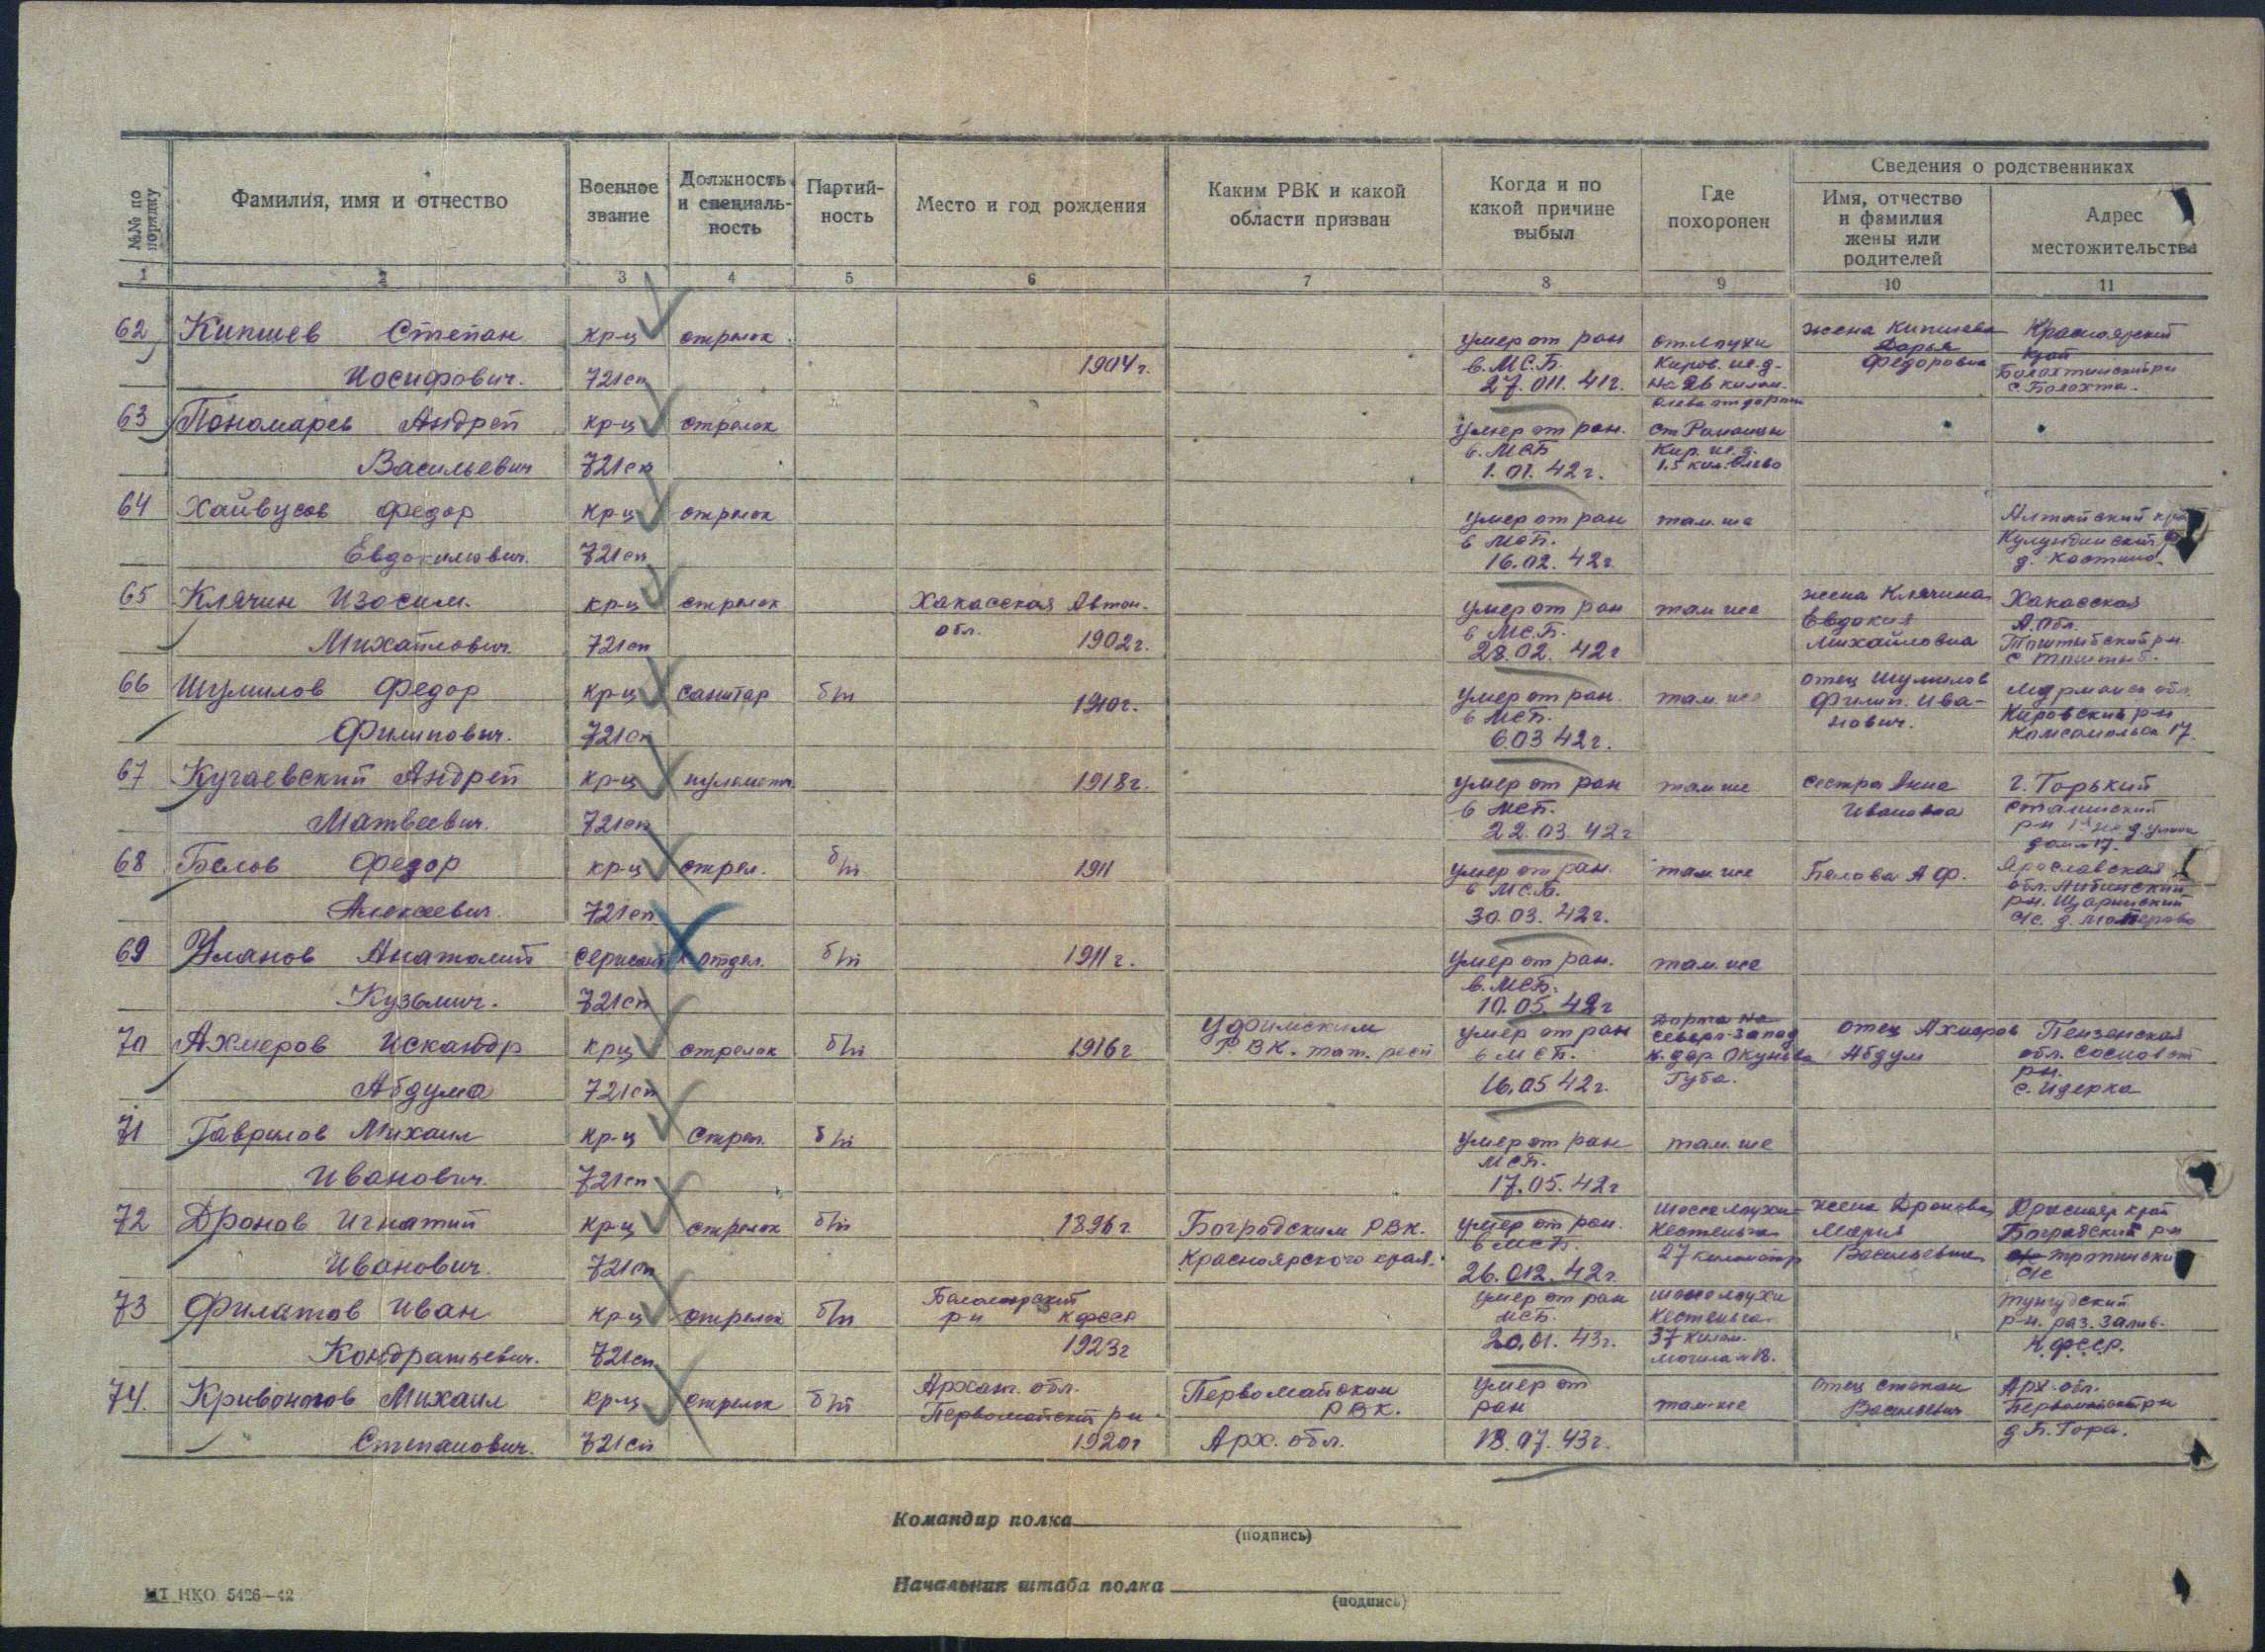 №№ по порядку
Фамилия, имя и отчество
Военное звание
Должность и специаль-ность
Партий-ность
Место и год рождения
Каким РВК и какой области призван
Когда и по какой причине выбыл
Где похоронен
Сведения о родственниках
Имя, отчество и фамилия жены или родителей
Адрес местожительства
1 2 3 4 5 6 7 8 9 10 11
62 Кипшев Степан кр-ц стрелок умер от ран ст. Лоухи жена Кипшева Красноярский
1904 г. в. М.С.Б. Киров. ж.д. Дарья край
Иосифович. 721 сп 27.011.41г. на 26 килом. Федоровна с. Балахта.
влево от дороги
63 Пономарев Андрей кр-ц стрелок умер от ран.
в. МСБ Кир. ж.д.
Васильевич 721 сп 1.01.42г. 1,5 кил. влево
64 Хайвусов Федор кр-ц стрелок умер от ран там же Алтайский
в МСБ. Кулундинский
Евдокимович. 721 сп 16.02.42г
65 Клячин Изосим. кр-ц стрелок Хакасская Автон. умер от ран там же жена Клячина Хакасская
обл. в МС.Б. Евдокия А. Обл.
Михайлович. 721 сп 1902г. 28.02.42г Михайловна Таштыбский р-н
с Таштыб.
66 Шумилов Федор кр-ц санитар б/п 1910г. умер от ран. там же отец Шумилов Мурманск обл.
в МСБ. Филип. Ива- Кировский р-н
Филипович. 721 сп 6.03 42г. нович. 17.
67 Кугаевский Андрей кр-ц пулеметч. 1918г. умер от ран там же сестра Анна г. Горький
в МСБ. Ивановна Сталинский
Матвеевич. 721 сп 22.03.42г р-н
дом 17.
68 Белов Федор кр-ц стрел. б/п 1911 умер от ран. там же Белова А Ф. Ярославская
в МС.Б. обл.
Алексеевич. 721 сп 30.03.42г. р-н
с/с. д.
69 Уланов Анатолий сержант отдел. б/п 1911г. умер от ран. там же
в. МСБ.
Кузьмич. 721 сп 10.05.42г
70 Ахмеров Искандр кр-ц стрелок б/п 1916г РВК. тат. респ умер от ран северо-запад отец Ахмеров Пензенская
в МСБ. Абдул обл.
Абдула 721 сп 16.05 42г. Губа. р-н.
71 Гаврилов Михаил кр-ц Стрел. б/п умер от ран там же
МСБ.
Иванович. 721 сп 17.05.42г
72 Дронов Игнатий кр-ц стрелок б/п 1896г Боградским РВК. умер от ран. шоссе Лоухи- жена Дронова Краснояр край
в МСБ. Кестеньга Мария Боградский р-н
Иванович. 721 сп Красноярского края. 26.012.42г. 27 километр Васильевна с/с
73 Филатов Иван кр-ц стрелок б/п Беломорский умер от ран шоссе Лоухи Тунгудский
р-н КФССР МСБ. Кестеньга р-н. раз.
Кондратьевич. 721 сп 1923г 20.01.43г. 37 килом. К.Ф.С.С.Р.
могила №18.
74. Кривоногов Михаил кр-ц стрелок б/п Арханг. обл. Первомайским умер от отец Степан Арх. обл.
Первомайский р-н РВК. ран там же Васильевич Первомайский р-н
Степанович. 721 сп 1920г Арх. обл. 18.07.43г. Гора.
Командир полка
(подпись)
Начальник штаба полка
(подпись)
ШТ НКО 5426—42